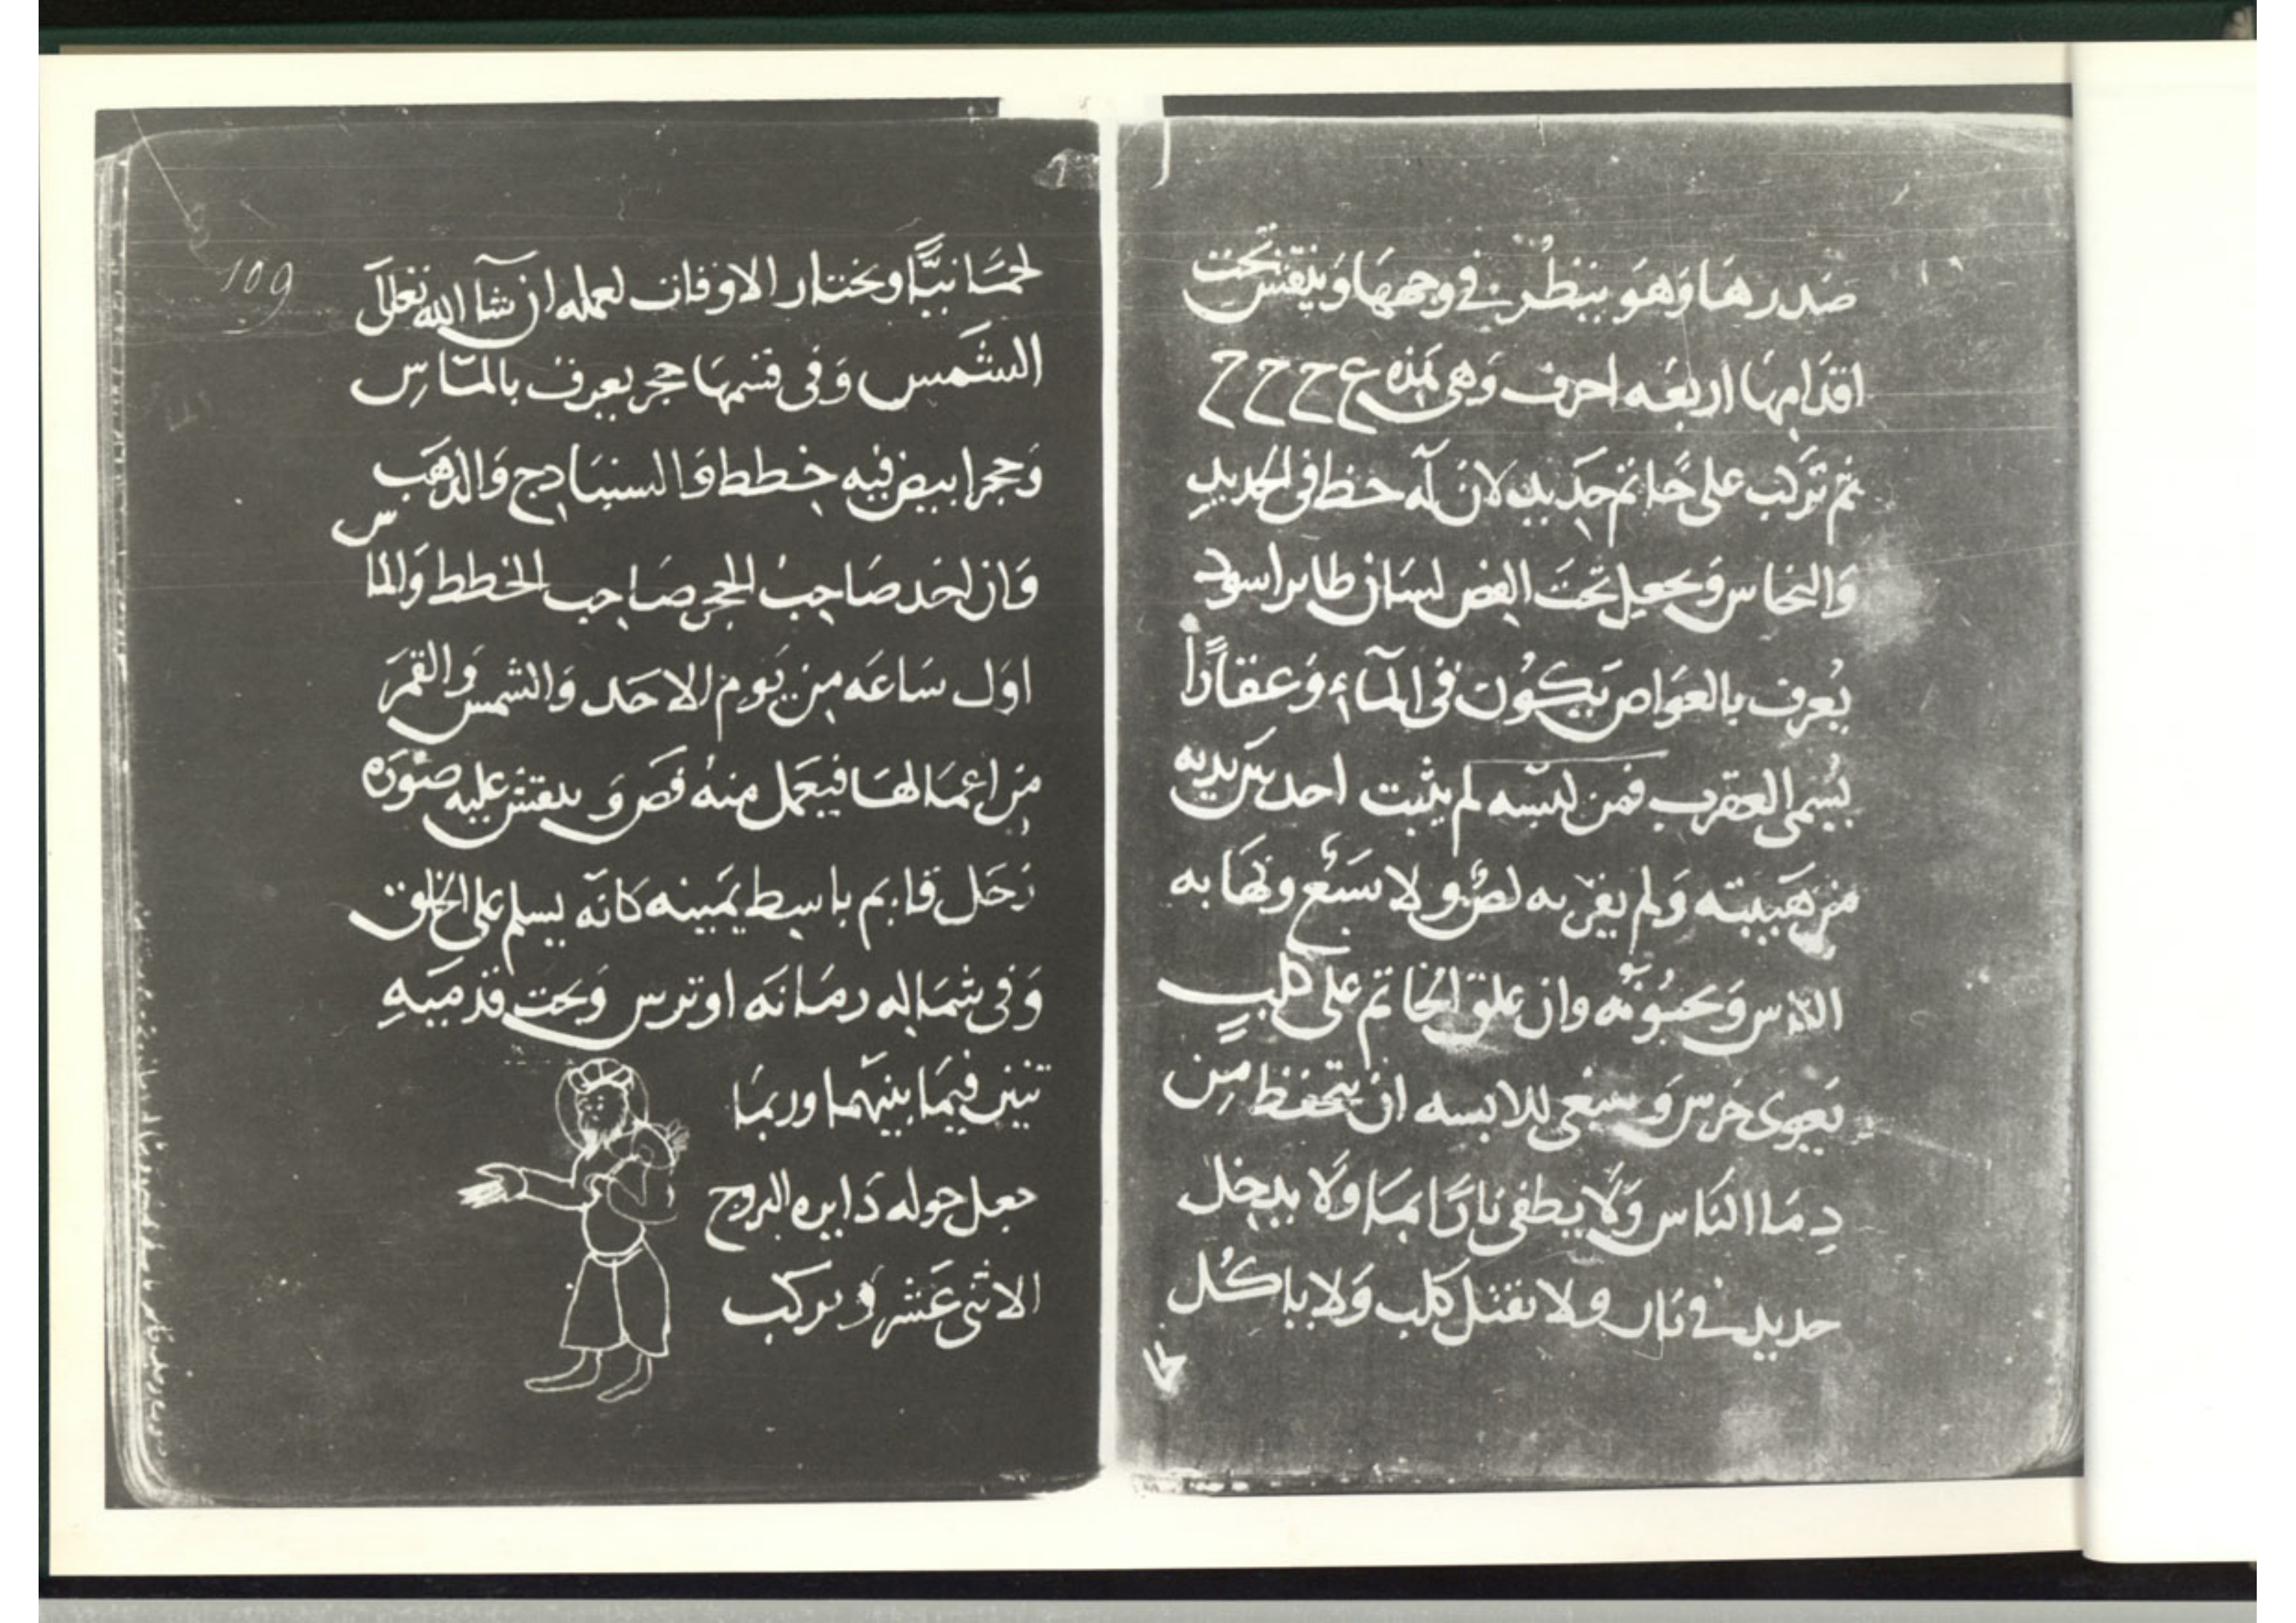 صَدرهَا وَهوَ يَنظُر في وجههَا وَينقش تحت
اقدَامهَا اربعَه احرف وَهى هَذه ع ح ح ح
ثم تركب على خَاتم حَديد لان لَه حظ فى الحديدِ
وَالنحاس وَيجعل تحتَ الفص لسَان طاير اسود
يُعرف بالغوَاص يَكُون فى المآء وَعقارًا
يُسمى العقرب فمن لبسه لم يثبت احد بين يديه
من هَيبته وَلم يقربه لصٌ ولا سَبُع وتهَابه
الناس وَيحبُونه وان علق الخاتم على كلبٍ
يَعوى خرس وَينبغى للابسه ان يتحفظ مِن
دِمَا النَاس وَلَا يطفى نارًا بمَا وَلَا يدخل
حديد في نار ولا يقتل كلب وَلا ياكُل
لحمَا نيًّا ويختار الاوقات لعمله ان شآ الله تعلى
109
الشمس وَفى قسمهَا حجر يعرف بالماس
وَحجر ابيض فيه خطط وَالسنبَادج وَالذهَب
وَان اخد صَاحِبُ الحجر صَاحِب الخطط وَالماس
اوَل سَاعَه مِن يَوم الاحَد وَالشمس وَالقمَر
مِن اعمَالهَا فيعَمل منهُ فصَ وَينقش عليه صُورَه
رَجَل قايم باسِط يمَينه كانه يسلم على الخلق
وَفى شمَاله رمَانَه او ترس وَتحت قدميَهِ
تنين فيمَا بينهما وربمَا
جعل حوله دَايره البروج
الاثنى عَشر ويركب